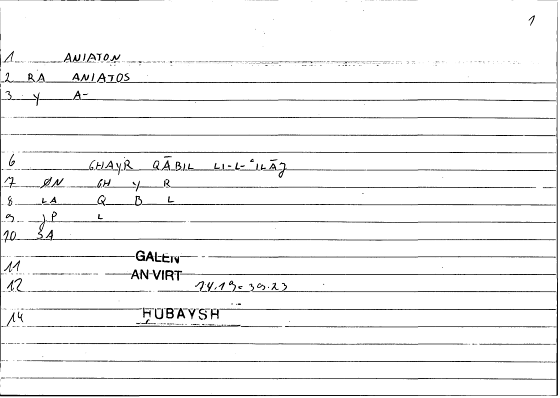 1
1 ANIATON
2 RA ANIATOS
3 y A-
6 GHAYR QĀBIL LI-L-ʿILĀJ
7 ØN GH Y R
8 LA Q B L
9 JP L
10 SA
11 GALEN
12 AN VIRT 14.19= 39.23
14 ḤUBAYSH